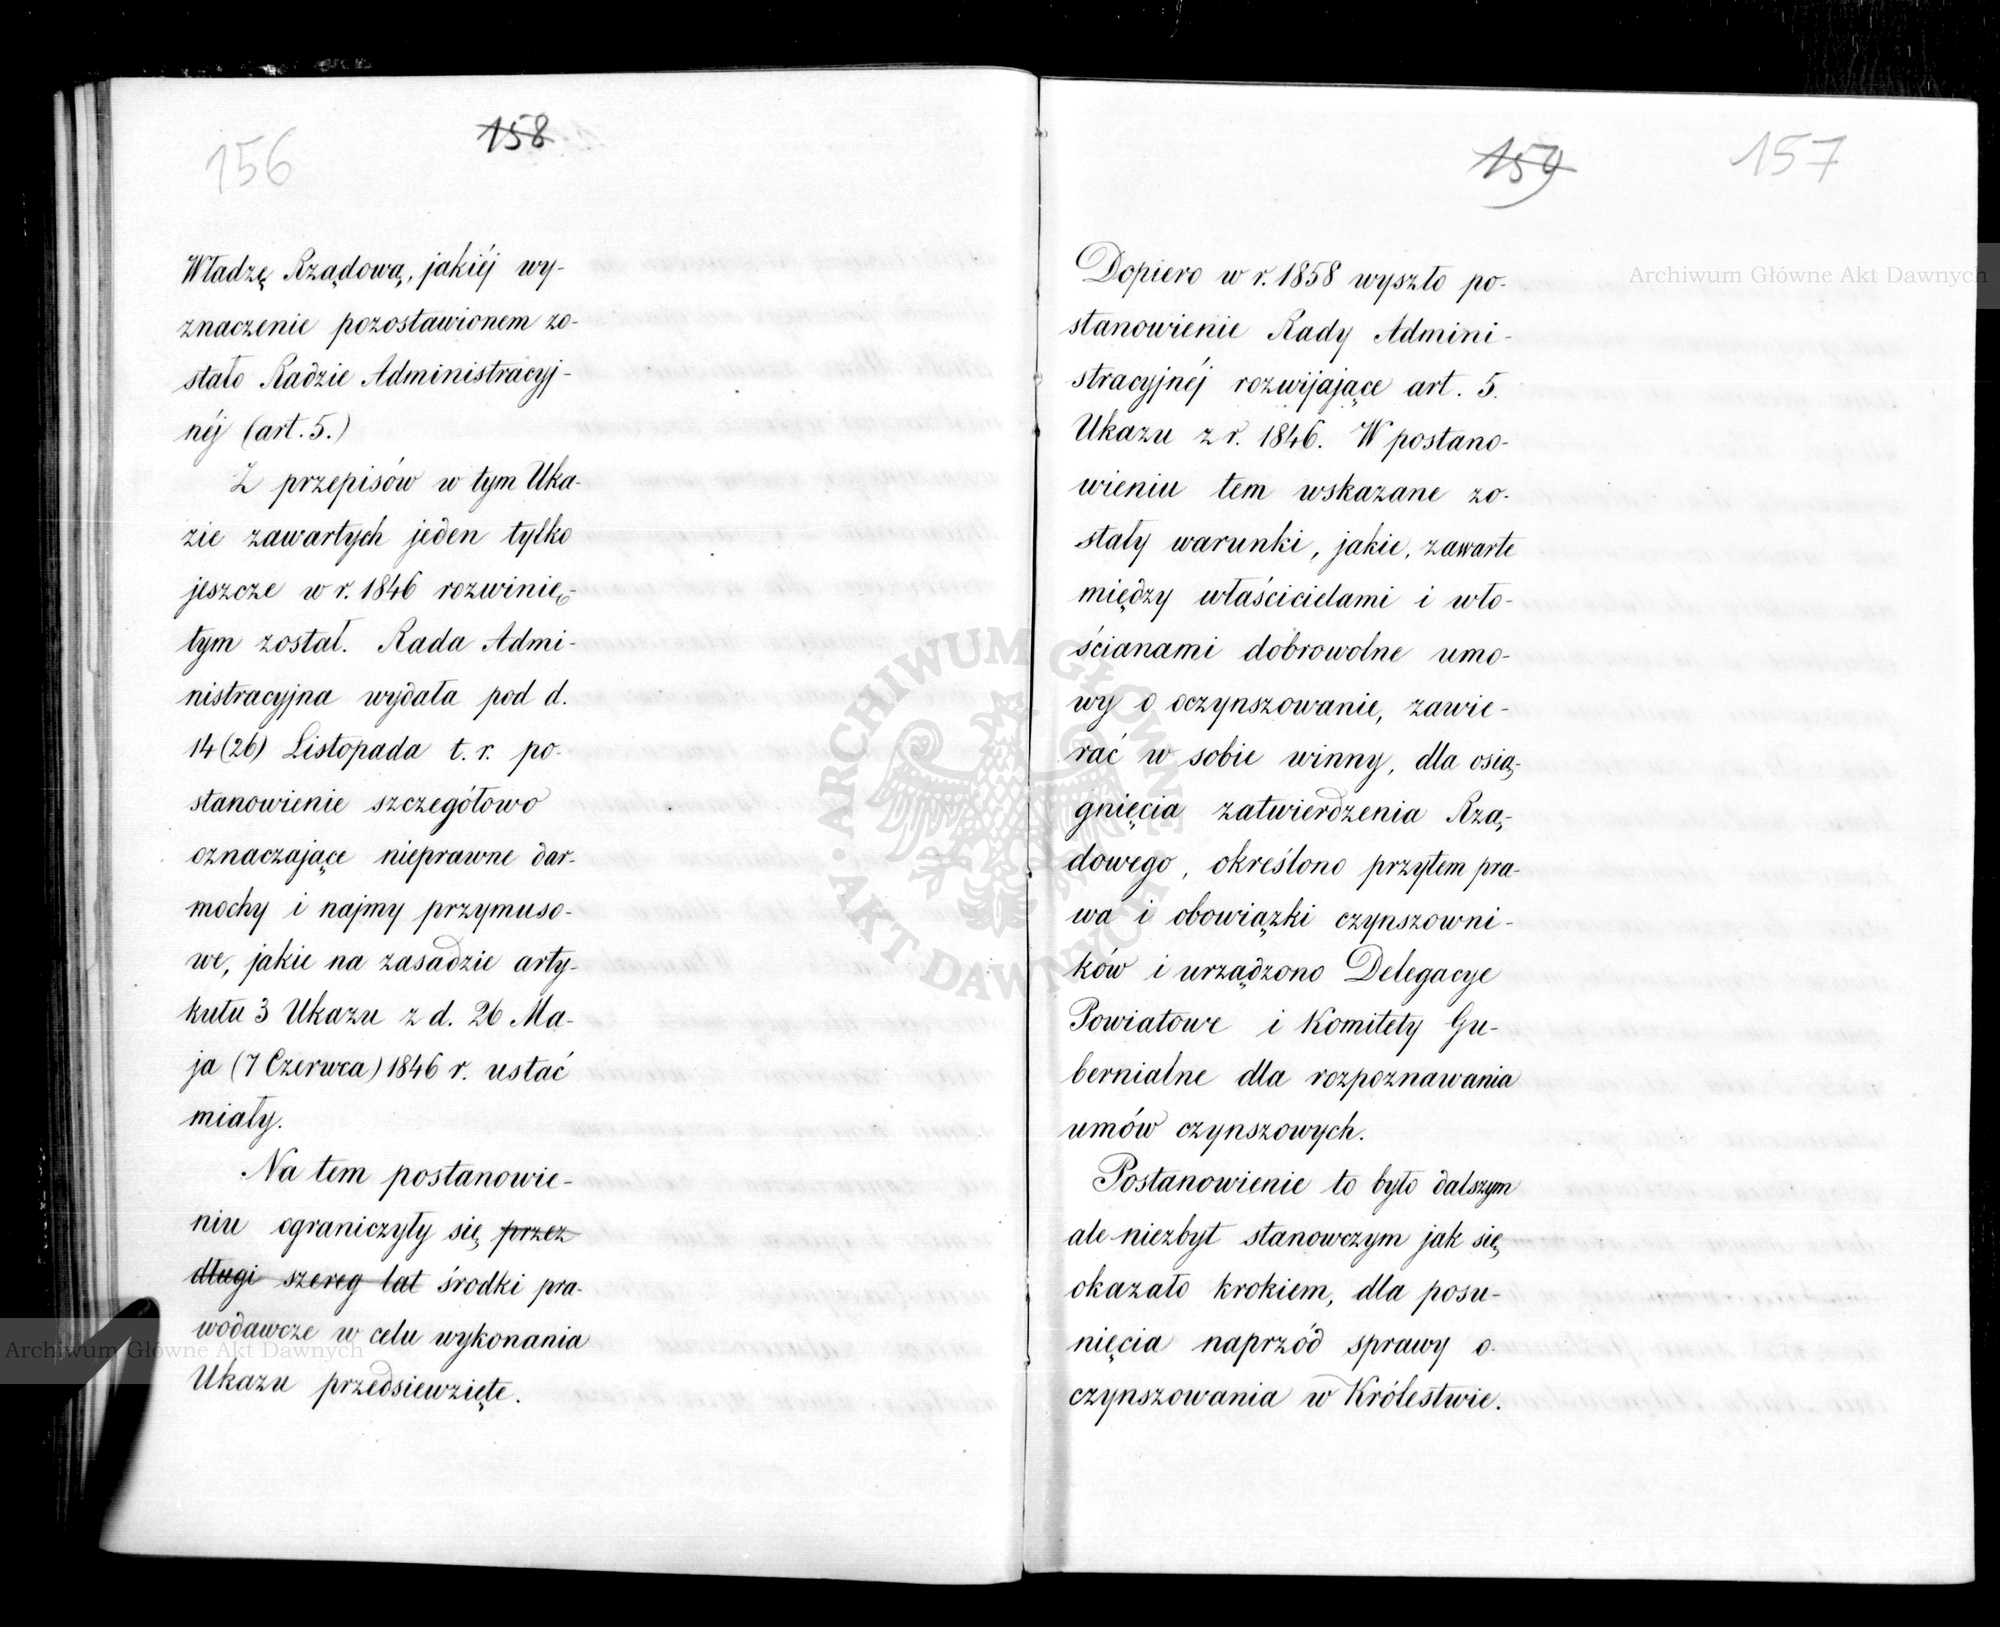 156
158
Władzę Rządową, jakiéj wy-
znaczenie pozostawionem zo-
stało Radzie Administracyj-
néj (art. 5.)
Z przepisów w tym Uka-
zie zawartych jeden tylko
jeszcze w r. 1846 rozwinię-
tym został. Rada Admi-
nistracyjna wydała pod d.
14 (26) Listopada t. r. po-
stanowienie szczegółowo
oznaczające nieprawne dar-
mochy i najmy przymuso-
we, jakie na zasadzie arty-
kułu 3 Ukazu z d. 26 Ma-
ja (7 Czerwca) 1846 r. ustać
miały.
Na tem postanowie-
niu ograniczyły się przez
długi szereg lat środki pra-
wodawcze w celu wykonania
Ukazu przedsiewzięte.
159
157
Dopiero w r. 1858 wyszło po-
stanowienie Rady Admini-
stracyjnéj rozwijające art. 5.
Ukazu z r. 1846. W postano-
wieniu tem wskazane zo-
stały warunki, jakie, zawarte
między właścicielami i wło-
ścianami dobrowolne umo-
wy o oczynszowanie, zawie-
rać w sobie winny, dla osią-
gnięcia zatwierdzenia Rzą-
dowego, określono przytem pra-
wa i obowiązki czynszowni-
ków i urządzono Delegacye
Powiatowe i Komitety Gu-
bernialne dla rozpoznawania
umów czynszowych.
Postanowienie to było dalszym
ale niezbyt stanowczym jak się
okazało krokiem, dla posu-
nięcia naprzód sprawy o-
czynszowania w Królestwie.
Archiwum Główne Akt Dawnych
Archiwum Główne Akt Dawnych
ARCHIWUM GŁÓWNE AKT DAWNYCH